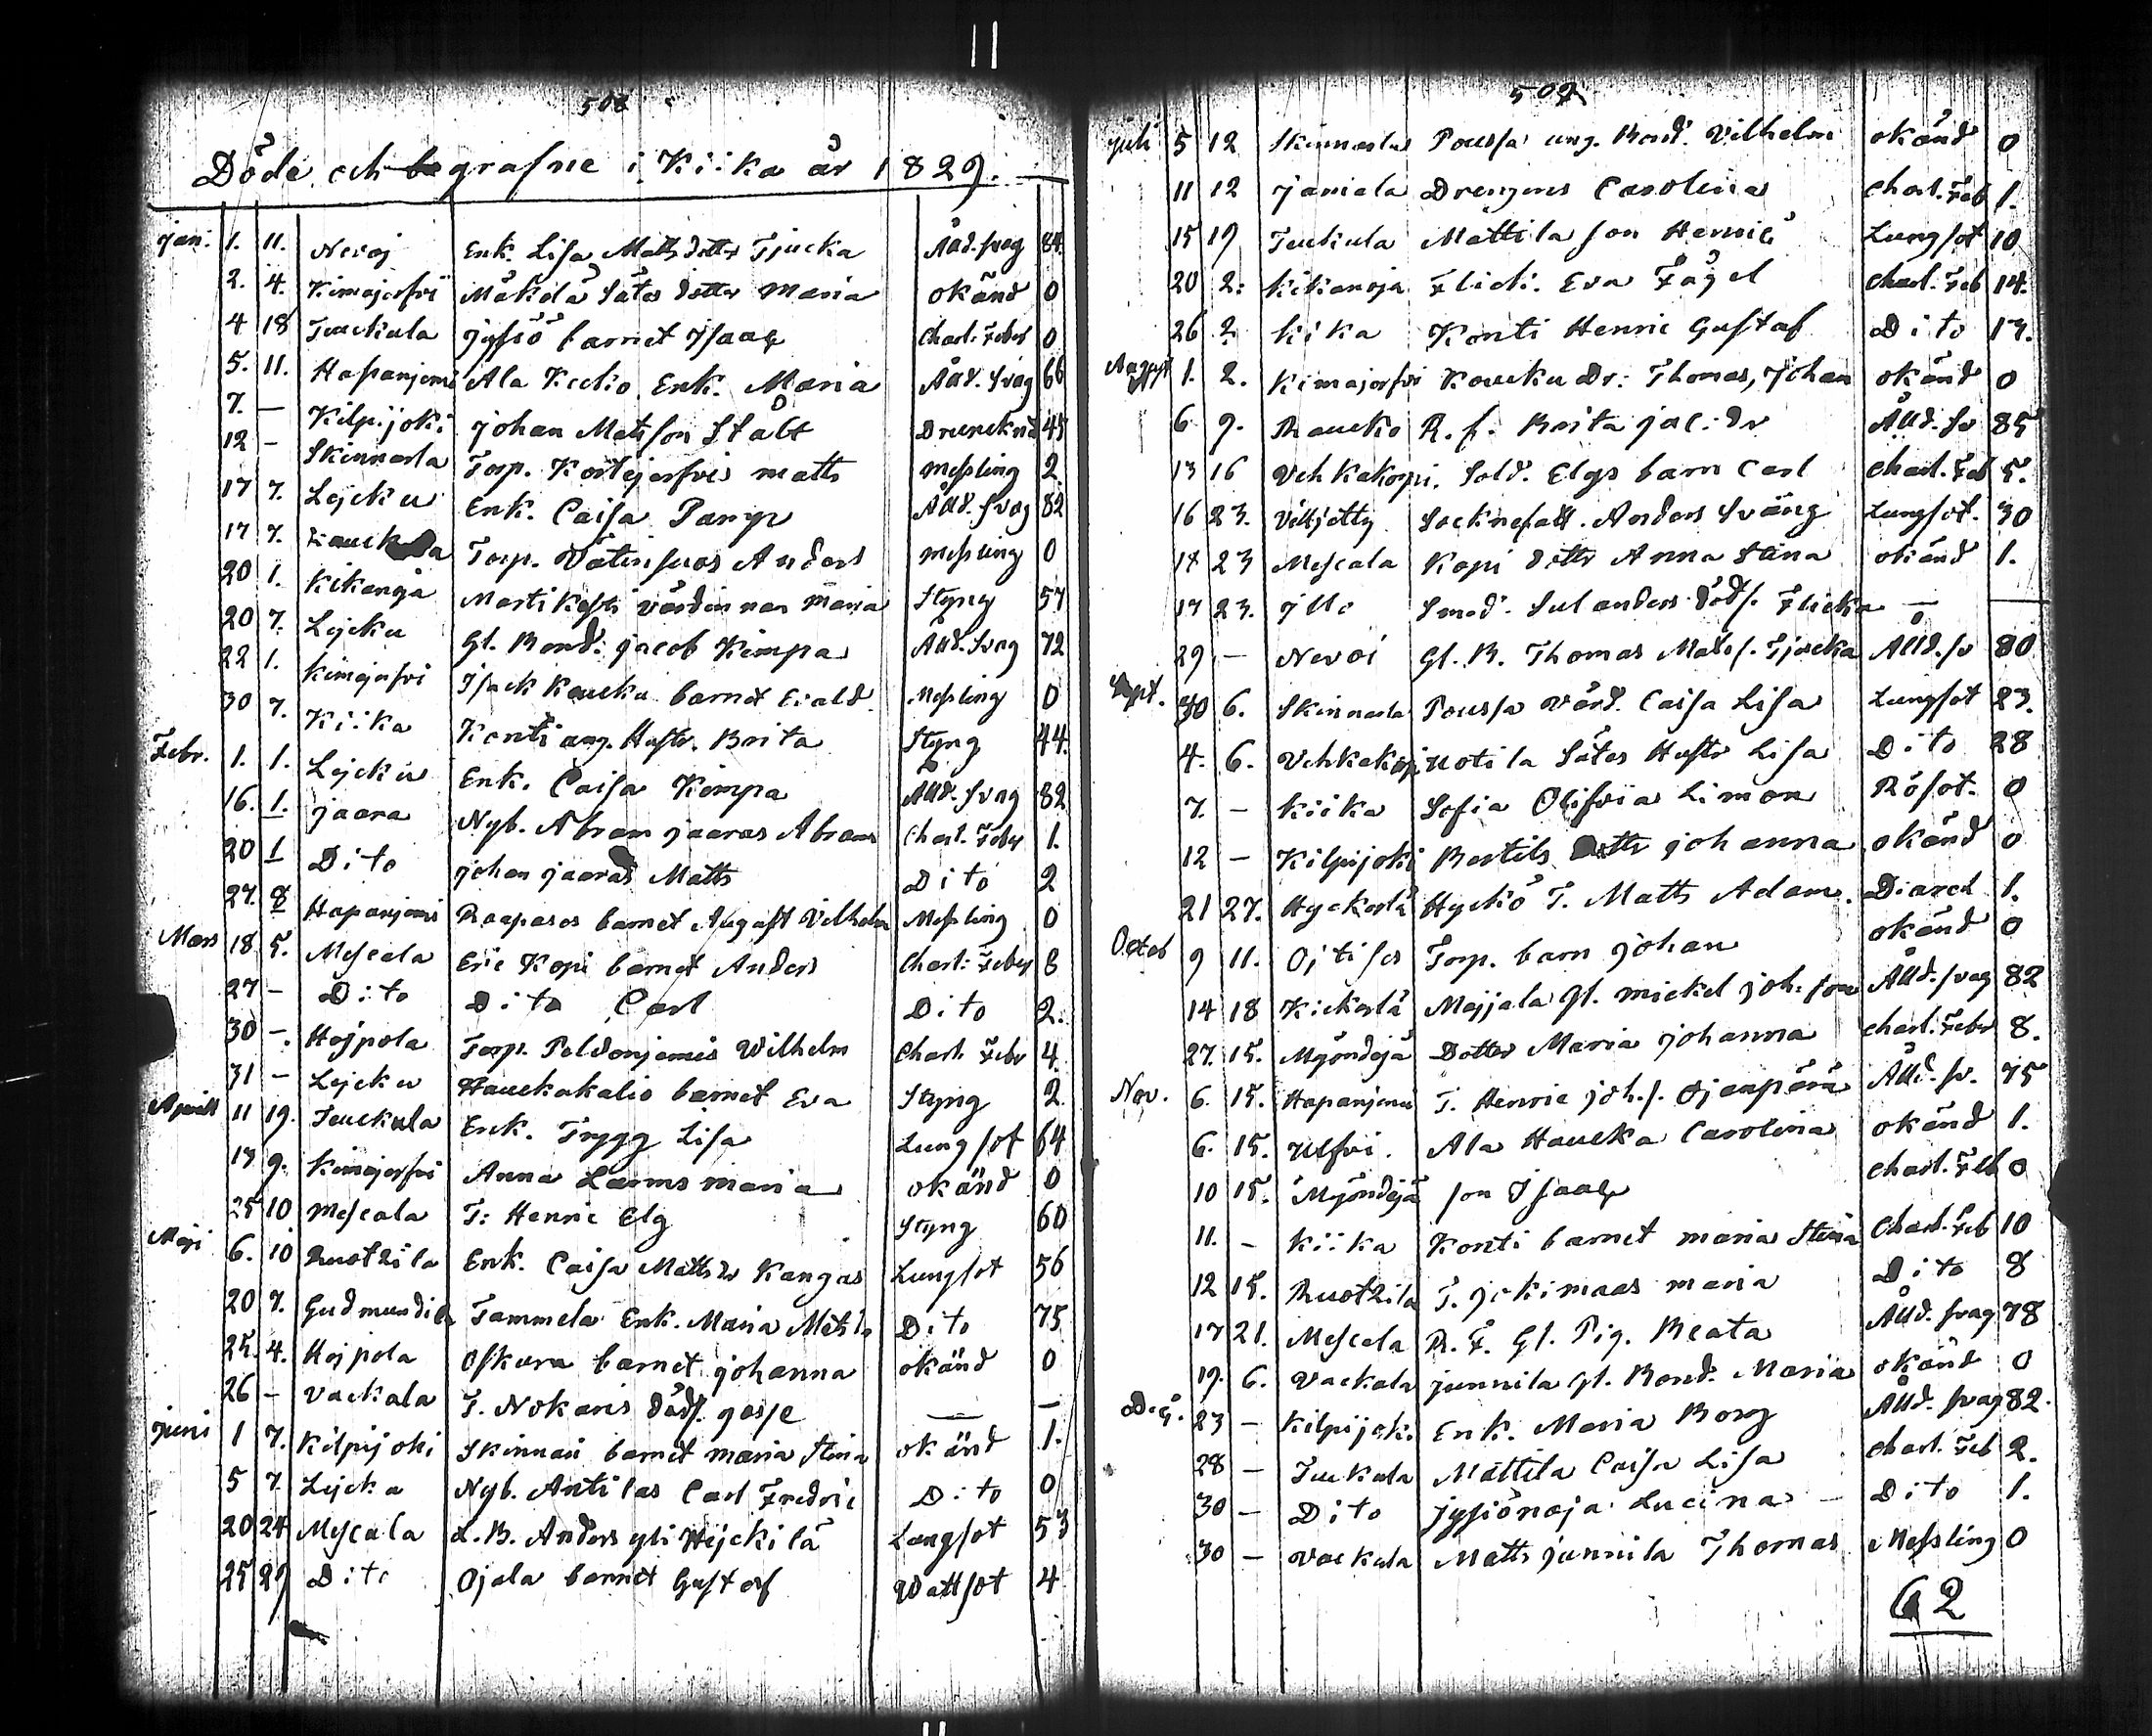 508
Döde och begrafne i Kiika år 1829.
Jan. 1. 11. Nevoj Enk. Lisa Matts dotter Tjucka Åld.svag 84.
2. 4. Kimajerfvi Mäkelä Sätes dotter Maria okänd 0
4 18 Teuckula Jysiö barnet Isaac Charl. Feber 0
5. 11. Hapanjemi Ala Keckio Enk. Maria Åld. svag 66
7. — Kilpijoki Johan Matsson Stålt Drunknad 45
12 - Skinnarla Torp. Kortejerfvis Matts Messling 2
17 7. Lejcku Enk. Caisa Pamp Åld. svag 82
17 7. Torp. Vätinsuos Anders Messling 0
20 1. Kikanoja Marti Kesti värdinnan Maria Styng 57
20 7. Lejcku Gl. Bond. Jacob Kimpa Åld. Svag 72
22 1. Kimajerfvi Isack Kaucku barnet Evald Messling 0
30 7. Kiika Konti ung. Hustr. Brita Styng 44.
Febr. 1. 1. Lejcku Enk. Caisa Kimpa Åld. svag 82
16. 1. Jaara Nyb. Abram Jaaras Abram Charl. Feber 1.
20 1 Dito Johan Jaaras Matts Dito 2
27. 8 Hapanjemi Raapasos barnet August Vilhelm Messling 0
Mars 18 5. Mescala Eric Kopi barnet Anders Charl: Feber 8
27 - Dito Dito Carl Dito 2.
30 -. Hojpola Torp. Peldonjemis Wilhelm Charl. Feber 4.
31 - Lejcku Hauckakalio barnet Eva Styng 2.
Aprill 11 19. Teuckula Enk. Trygg Lisa Lungsot 64
17 9. Kimajerfvi Anna Maria okänd 0
25 10 Mescala T: Henric Elg Styng 60
Maji 6. 10 Ruotzila Enk. Caisa Matts dr Kangas Lungsot 56
20 7. Gudmundila Tammela Enk. Maria Dito 75
25. 4. Hojpola Oskara barnet Johanna okänd 0
26 - Vackala T. Nokaris dödf. gosse — —
Juni 1 7. Kilpijoki Skinnari barnet Maria Stina okänd 1.
5 7. Lejcka Nyb. Antilas Carl Fredric Dito 0
20 24 Mescala L.B. Anders yli Hejckilä Lungsot 53
25 29 Dito Ojala barnet Gustaf Wattsot 4
509
Juli 5 12 Skinnarla Poussa ung. Bond. Vilhelm okänd 0
11 12 Janiala Drengens Carolina Charl. Feb 1.
15 19 Teukula Mattila son Henric Lungsot 10
20 2: Kikanoja Flick. Eva Fågel Charl. Feb 14.
26 2 Kiika Konti Henric Gustaf Dito 17.
August 1. 2. Kimajerfvi Kaucku Dr: Thomas, Johan okänd 0
6 9. Raucko R. f. Brita Jac: dr Ålld. Sv 85
13 16 Vehkakorpi. Sold. Elgs barn Carl Charl. Feb 5.
16 23. Anders Sväng Lungsot. 30
17 23 Mescala Kopi dottr Anna Stina okänd 1.
17 23. Illo Smed. Sulanders dödf. Flicka —
29 — Nevoi Gl. B. Thomas Mats s. Tjucka Ålld. sv 80
Sept. 6. Skinnarla Poussa värd. Caisa Lisa Lungsot 23.
4. 6. Vehkakorpi Uotila Sätes Hustr Lisa Dito 28
7. - Kiika Sofia Olifvia Limon Rösot. 0
12 - Kilpijoki Bertils Dottr Johanna okänd 0
21 27. Hyckerlä Hyckö T. Matts Adam. Diareh 1.
Octob 9 11. Ojtises Torp. barn Johan okänd 0
14 18 Kickerlä Majjala Gl. Mickel Joh. son Ålld. svag 82
27. 15. Myöndejä Dotter Maria Johanna Charl. Febr 8.
Nov. 6. 15. Hapanjemi T. Henric Joh. s. Ojanpärä Ålld. sv. 75
6. 15. Ulfvi. Ala Haucka Carolina okänd 1.
10 15. Myöndejä son Isaac Charl. Feb 0
11. - Kiika Konti barnet Maria Stina Charl. Feb 10
12 15. Ruotzila T. Jokimaas Maria Dito 8
17 21. Mescala R. F. Gl. Pig. Beata Ålld. svag 78
19. 6. Vackala Junnila Gl. Bond. Maria okänd 0
Dec. 23 - Kilpijoki Enk. Maria Borg Ålld. svag 82.
28 - Teukula Mattila Caisa Lisa Charl. Feb 2.
30 - Dito Jysiönoja Lucina - Dito 1.
30 - Vackala Matts Junnila Thomas Messling 0
62